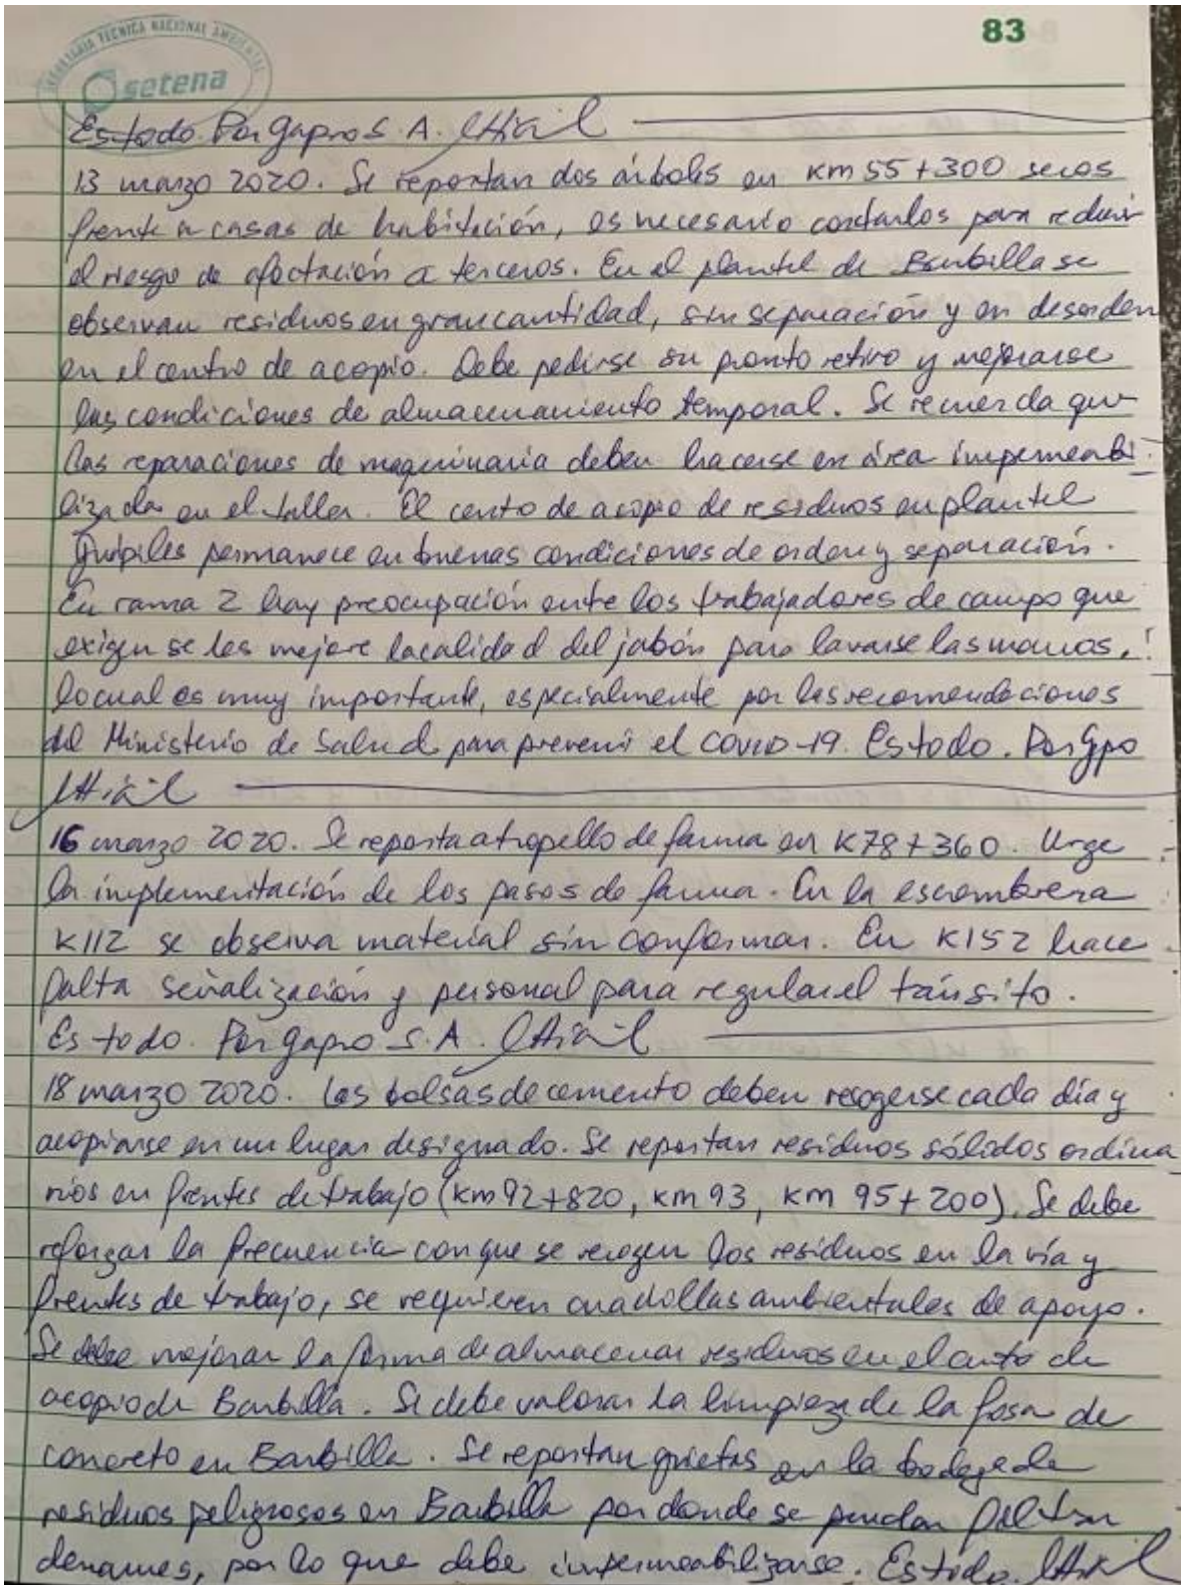 83
SECRETARIA TECNICA NACIONAL AMBIENTAL
setena
Es todo. Por Gapro S. A.
13 marzo 2020. Se reportan dos árboles en km 55+300 secos
frente a casas de habitación, es necesario cortarlos para reducir
el riesgo de afectación a terceros. En el plantel de Barbilla se
observan residuos en gran cantidad, sin separación y en desorden
en el centro de acopio. Debe pedirse su pronto retiro y mejorarse
las condiciones de almacenamiento temporal. Se recuerda que
las reparaciones de maquinaria deben hacerse en área impermeabi-
lizada en el taller. El centro de acopio de residuos en plantel
permanece en buenas condiciones de orden y separación.
En rama 2 hay preocupación entre los trabajadores de campo que
exigen se les mejore la calidad del jabón para lavarse las manos,
lo cual es muy importante, especialmente por las recomendaciones
del Ministerio de Salud para prevenir el COVID-19. Es todo. Por Gpo
16 marzo 2020. Se reporta atropello de fauna en K78+360. Urge
la implementación de los pasos de fauna. En la escombrera
K112 se observa material sin conformar. En K152 hace
falta señalización y personal para regular el tránsito.
Es todo. Por Gapro S.A.
18 marzo 2020. Las bolsas de cemento deben recogerse cada día y
acopiarse en un lugar designado. Se reportan residuos sólidos ordina
rios en frentes de trabajo (km 92+820, km 93, km 95+200). Se debe
reforzar la frecuencia con que se recogen los residuos en la vía y
frentes de trabajo, se requieren cuadrillas ambientales de apoyo.
Se debe mejorar la forma de almacenar residuos en el centro de
acopio de Barbilla. Se debe valorar la limpieza de la fosa de
concreto en Barbilla. Se reportan grietas en la bodega de
residuos peligrosos en Barbilla por donde se puedan filtrar
derrames, por lo que debe impermeabilizarse. Es todo.